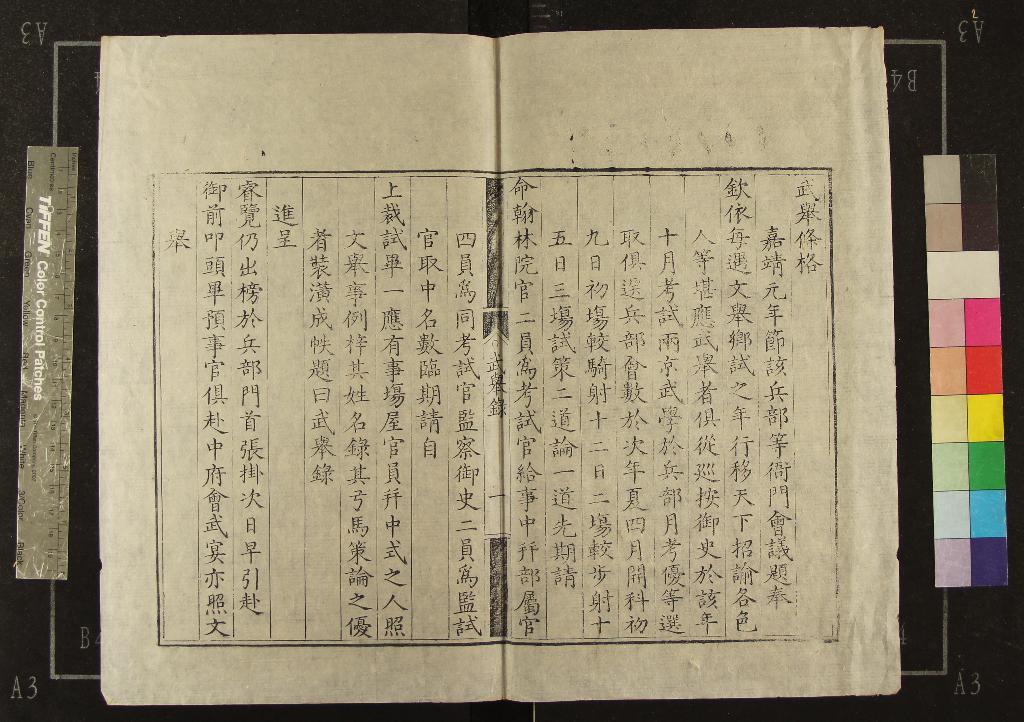 武舉條格
嘉靖元年節該兵部等衙門會議題奉
欽依每遇文舉鄉試之年行移天下招諭各色
人等堪應武舉者俱從巡按御史於該年
十月考試兩京武學於兵部月考優等選
取俱送兵部會數於次年夏四月開科初
九日初場較騎射十二日二場較步射十
五日三場試策二道論一道先期請
命翰林院官二員爲考試官給事中幷部屬官
武舉錄
一
四員爲同考試官監察御史二員爲監試
官取中名數臨期請自
上裁試畢一應有事場屋官員幷中式之人照
文舉事例梓其姓名錄其弓馬策論之優
者裝潢成帙題曰武舉錄
進呈
睿覽仍出榜於兵部門首張掛次日早引赴
御前叩頭畢預事官俱赴中府會武宴亦照文
舉
A3
A3
B4
B4
A3
A3
4
2
TIFFEN Color Control Patches
Centimetres
Blue
Cyan
Green
Yellow
Red
Magenta
White
3/Color
Black